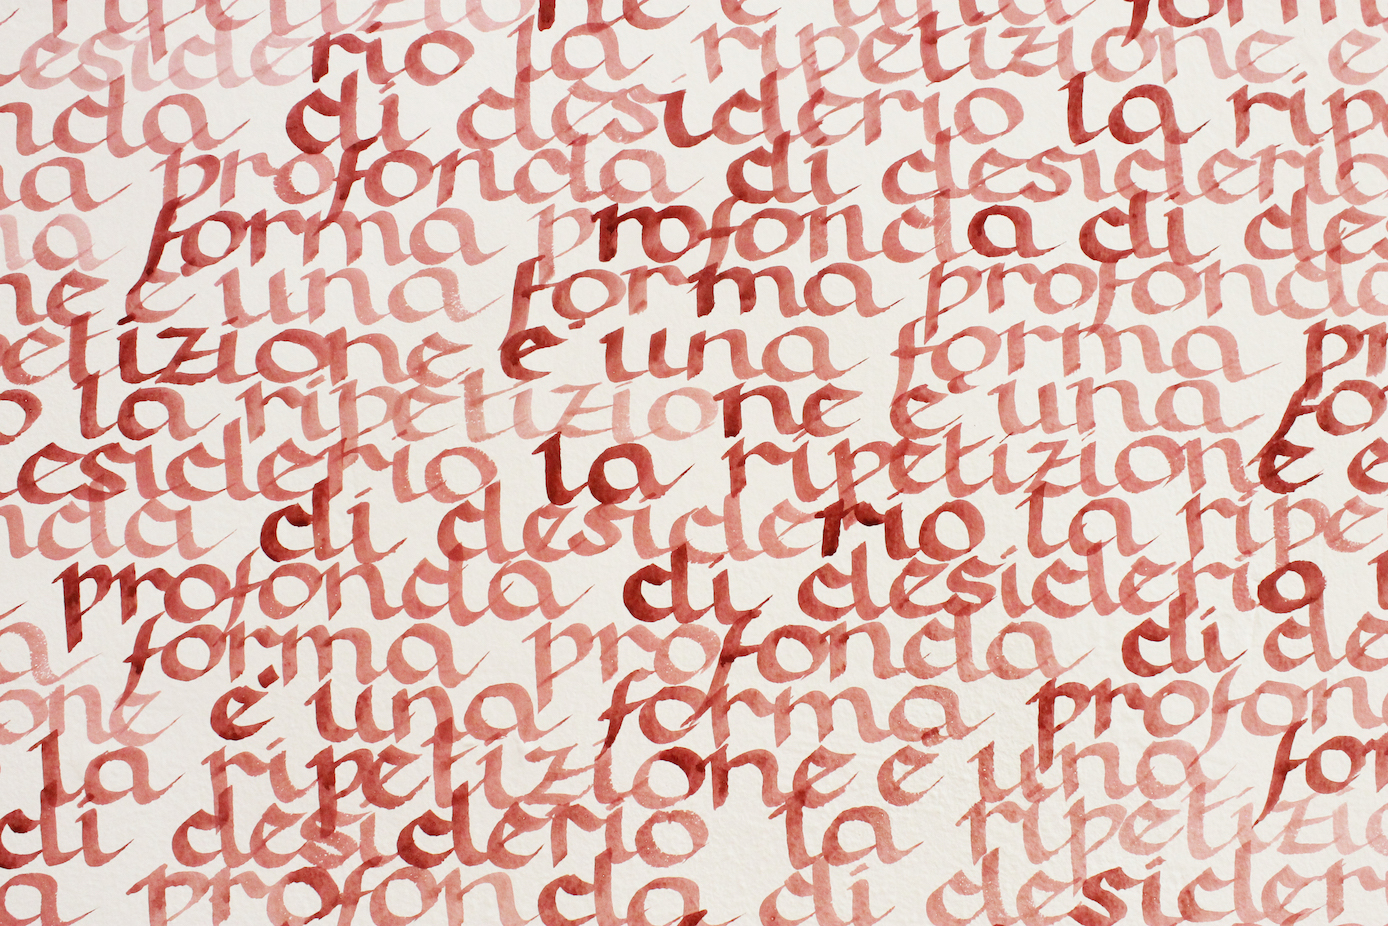 ripetizione è una forma
desiderio la ripetizione è
nda di desiderio la rip
na profonda di desiderio
na forma profonda di de
ne è una forma profonda
petizione è una forma pr
o la ripetizione è una fo
desiderio la ripetizione è
nda di desiderio la ripe
profonda di desiderio l
a forma profonda di de
one è una forma profon
la ripetizione è una for
di desiderio la ripetizio
a profonda di desider